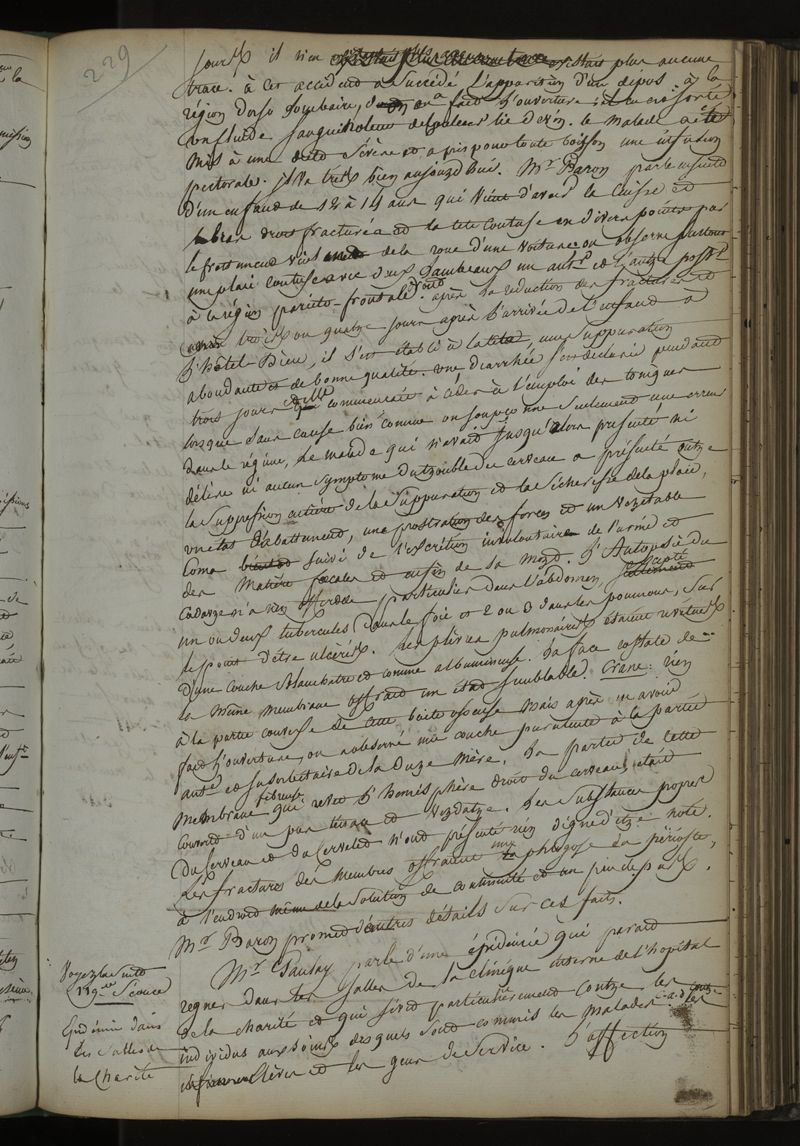 229
jours il n'en restait plus aucune
trace. à cet accident a succédé l'apparition d'un dépôt à la
région dorso lombaire, dont on a fait l'ouverture : il en est sorti
un fluide sanguinolent de couleur lie de vin. le malade a été
mis à une diète sévère et a pris pour toute boisson une infusion
pectorale. il va très bien aujourd'hui. Mr Baron parle ensuite
d'un enfant de 12 à 14 ans qui vient d'avoir la cuisse et
le bras droit fracturés et la tête contuse en divers points par
le frottement de la roue d'une voiture on observe surtout
une plaie contuse avec deux lambeaux un antr et l'autre postr
à la région pariéto-frontale. après la réduction des fractures et
trois ou quatre jours après l'arrivée de l'enfant à
l'hôtel-Dieu, il s'est établi à la tête, une suppuration
abondante et de bonne qualité. une diarrhée s'est déclarée pendant
trois jours elle commençait à céder à l'emploi des toniques
lorsque sans cause bien connue on soupçonne seulement une erreur
dans le régime, le malade qui n'avait jusqu'alors présenté ni
délire ni aucun symptome du trouble du cerveau a présenté outre
la suppression de la suppuration et la sécheresse de la plaie,
un état d'abattement, une prostration des forces et un véritable
coma suivi de l'excrétion involontaire de l'urine et
des matières fécales et enfin de la mort. L'Autopsie du
cadavre n'a rien offert de particulier dans l'abdomen, excepté
un ou deux tubercules dans le foie et 2 ou 3 dans les poumons, sur
le point d'être ulcérés. les plèvres pulmonaires étaient revêtues
d'une couche blanchatre et comme albumineuse. la face costale de
la même membrane offrait un état semblable. Crane : rien
à la partie couverte de cette boite osseuse mais après en avoir
fait l'ouverture, on a observé une couche purulente à la partie
antr et susorbitaire de la Dure Mère. La partie de cette
membrane fibreuse qui revêt l'hémisphère droit du cerveau, était
couverte d'un pus ténu et verdatre. Les substances propres
du cerveau et du cervelet n'ont présenté rien digne d'etre noté.
Les fractures des membres offraient une phlogose du périoste,
à l'endroit de la solution de continuité et un peu de pus.
Mr Baron promet d'autres détails sur ces faits.
Mr parle d'une épidémie qui parait
regner dans les salles de la clinique interne de l'hopital
de la charité et qui sévit particulièrement contre les
individus aux soins desquels sont commis les malades, a-d contre les
Elèves et les gens de service. L'affection
Voyez la suite
119me Séance
Epidémie dans
les salles de
la Charité